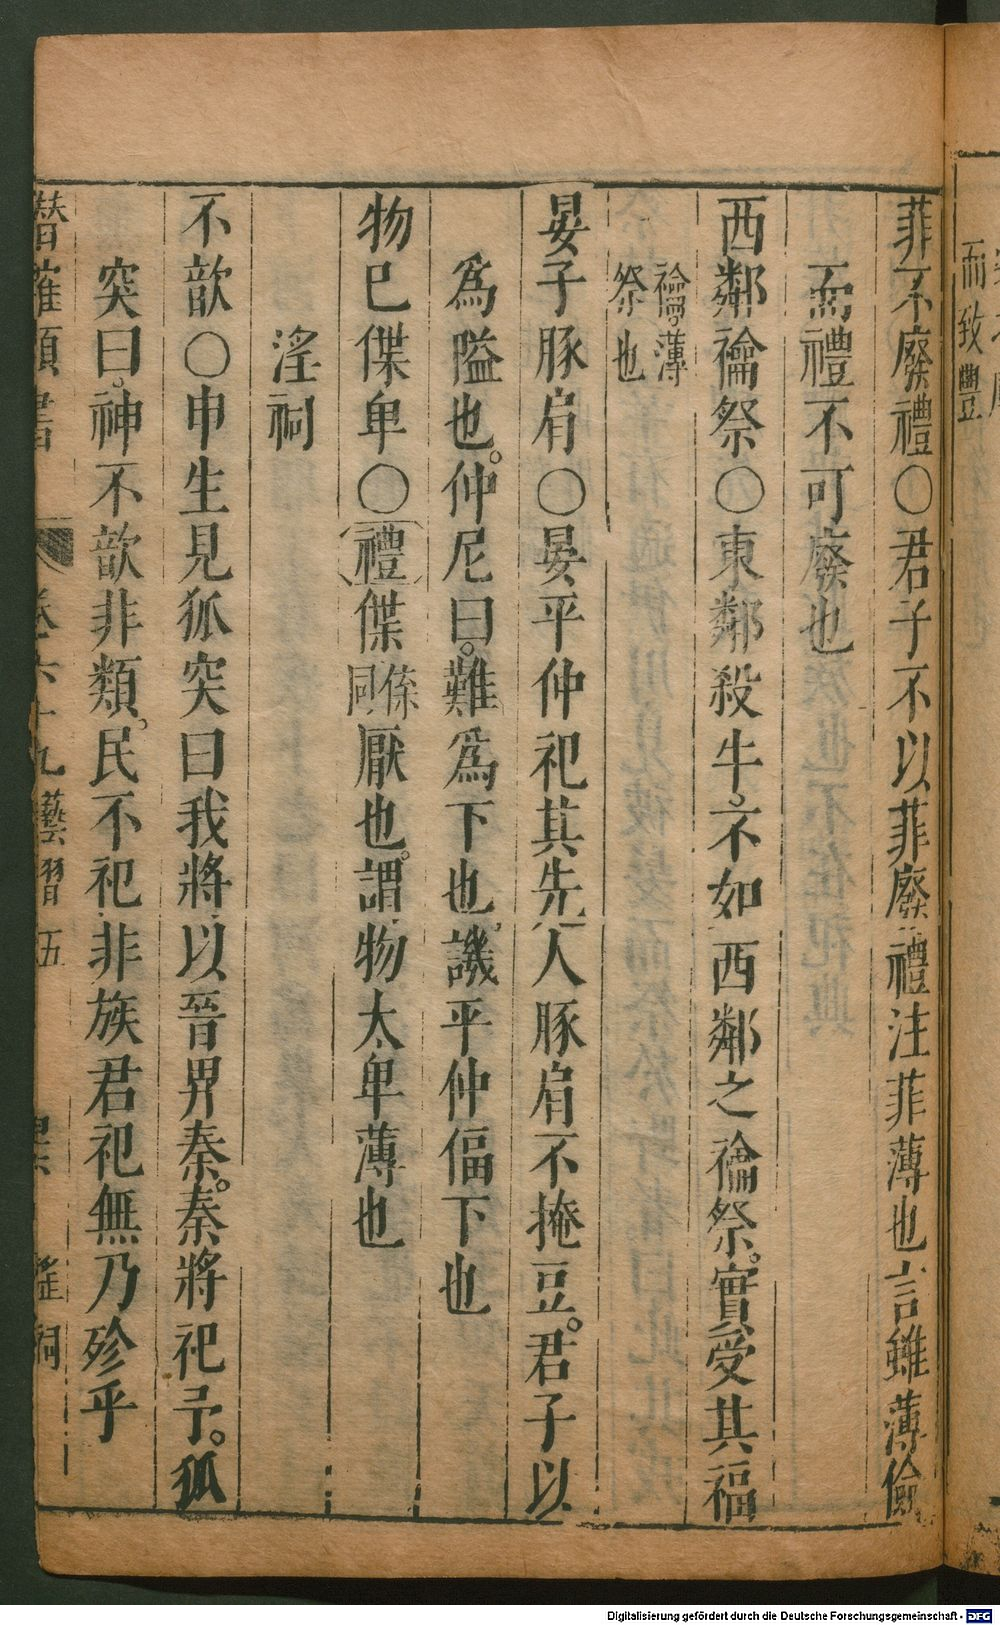 而致豐
菲不廢禮○君子不以菲廢禮注菲薄也言雖薄儉
而禮不可廢也
西鄰禴祭○東鄰殺牛。不如西鄰之禴祭。實受其福
禴禴。薄
祭也
晏子豚肩○晏平仲祀其先人豚肩不掩豆。君子以
為隘也。仲尼曰。難為下也。譏平仲偪下也
物已偞卑○禮偞
偞
同
厭也。謂物太卑薄也
淫祠
不歆○申生見狐突曰我將以晉畀秦。秦將祀予。狐
突曰。神不歆非類。民不祀非族君祀無乃殄乎
潛確類書 卷六十九 藝習五 淫祠
Digitalisierung gefördert durch die Deutsche Forschungsgemeinschaft - DFG